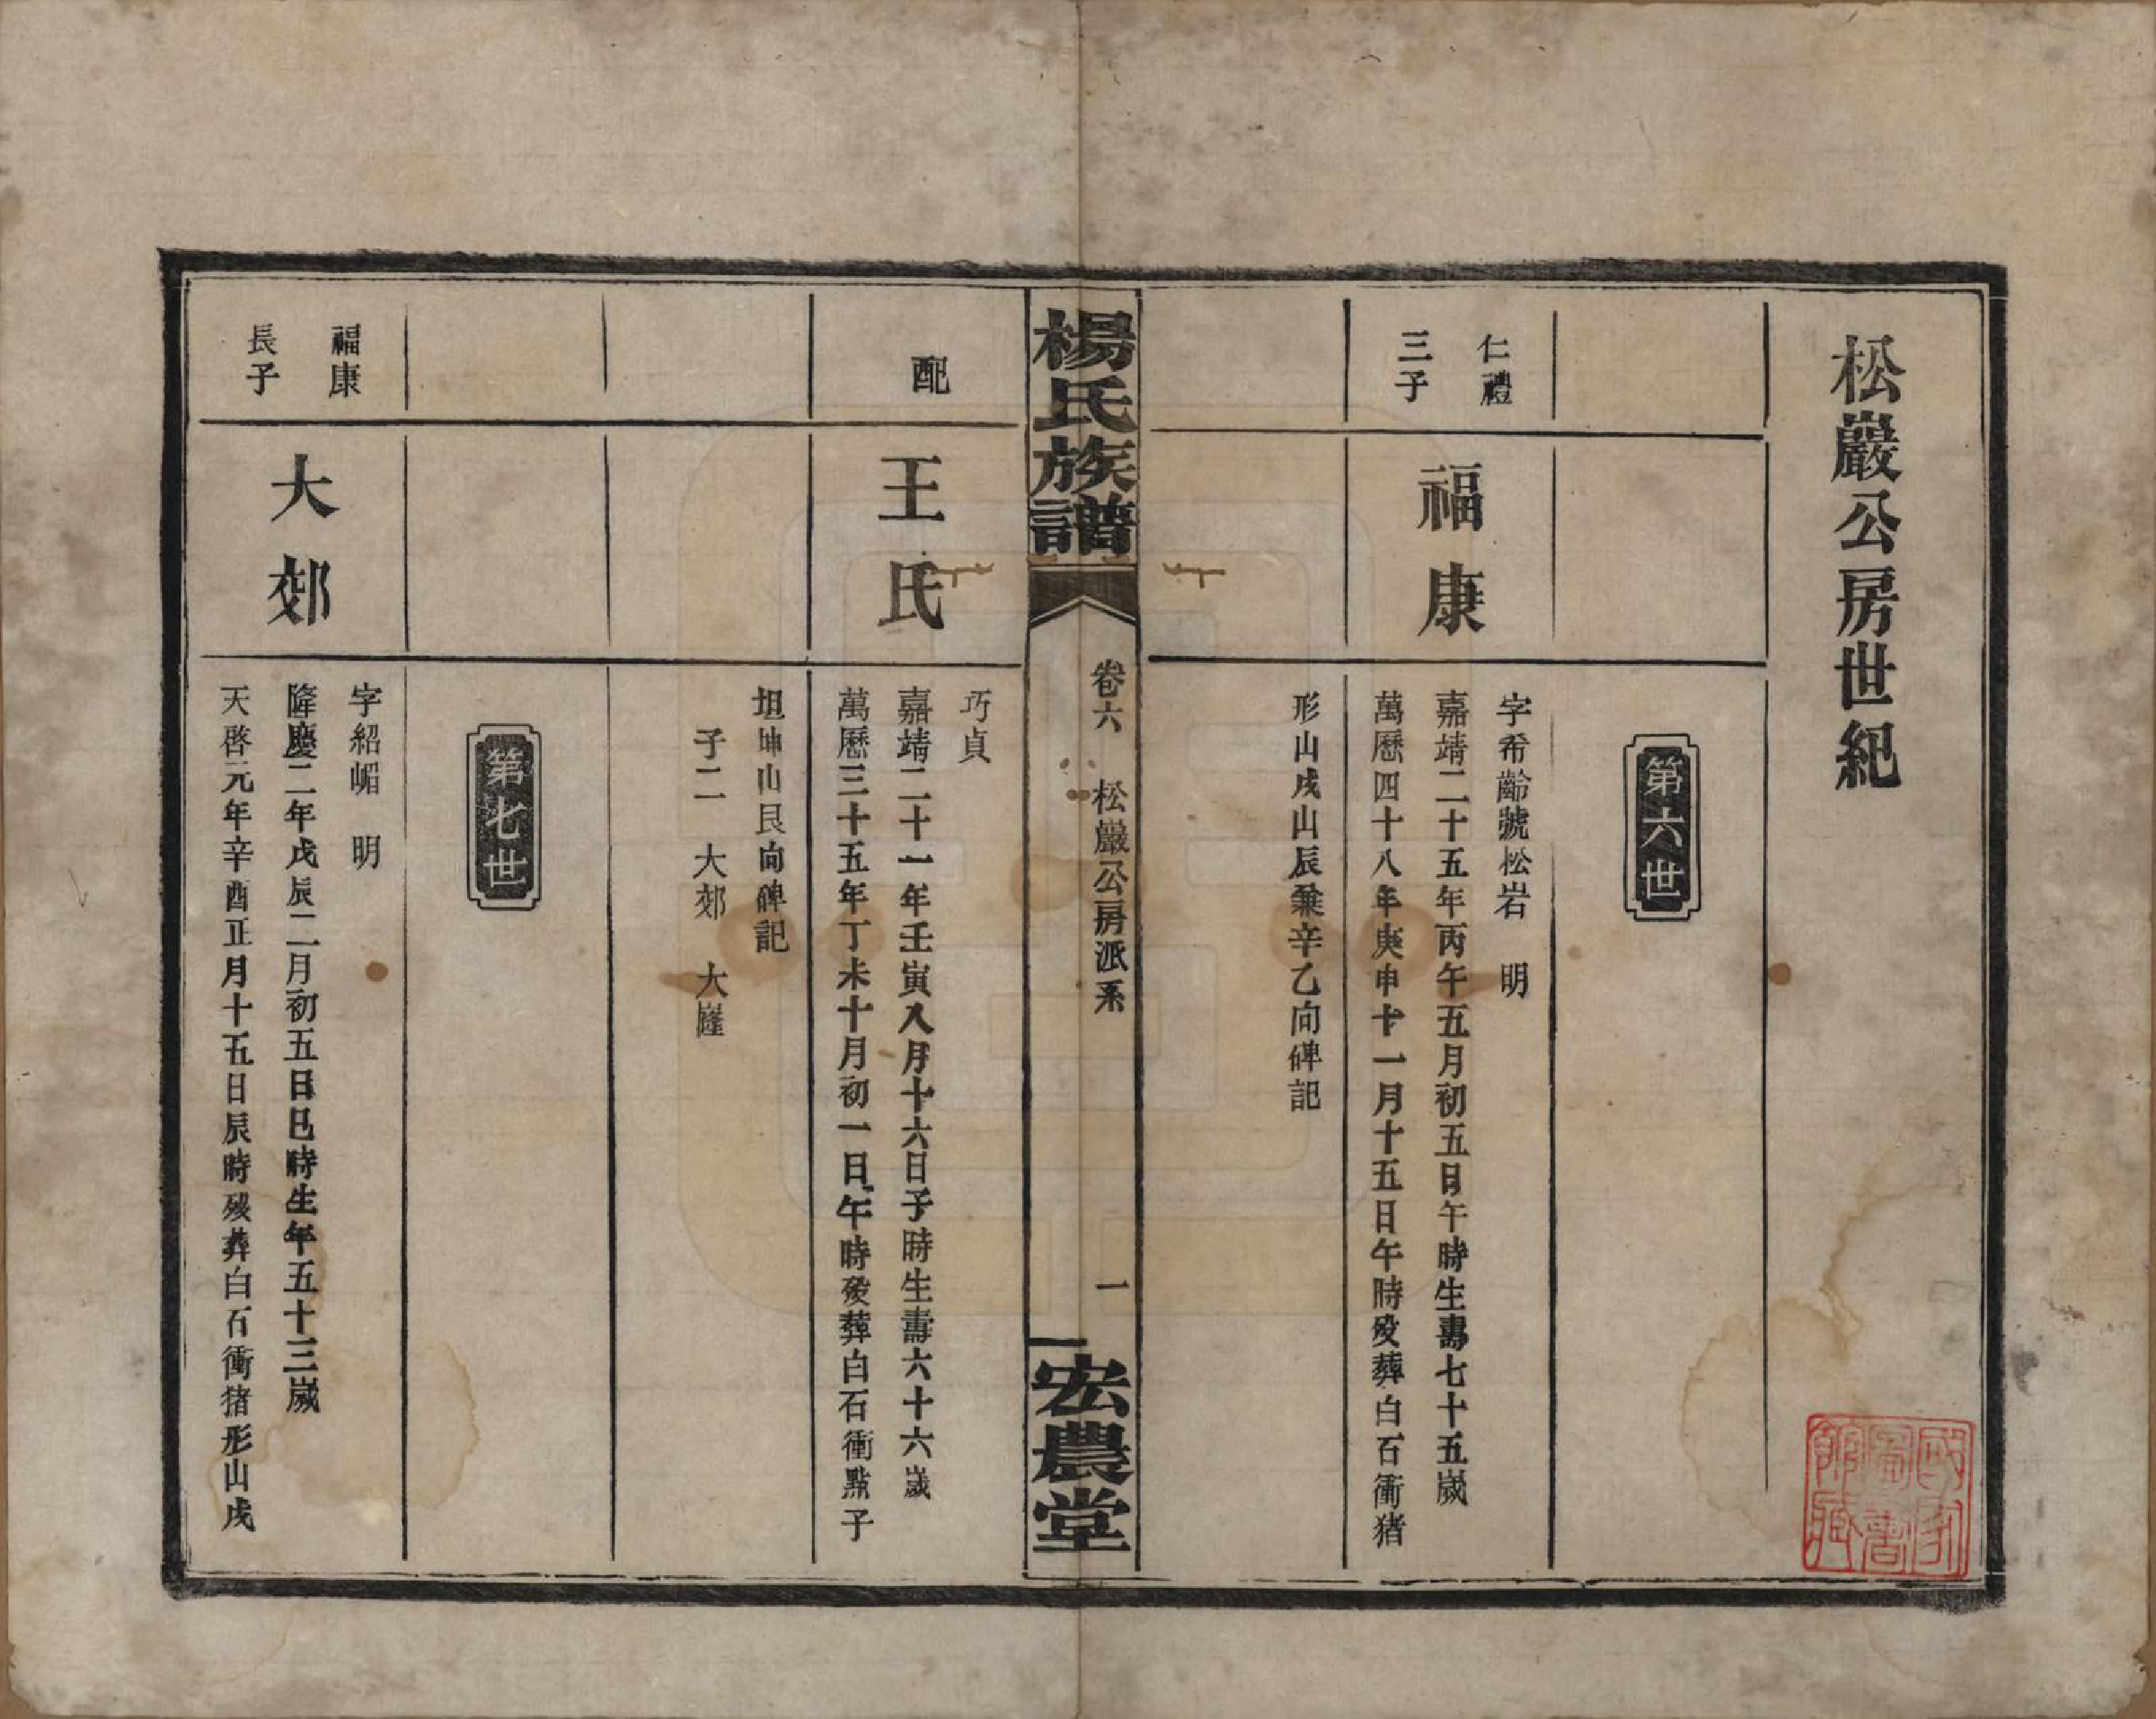 松巖公房世紀
第六世
仁禮
三子
福康
字希齡號松岩　明
嘉靖二十五年丙午五月初五日午時生壽七十五歲
萬曆四十八年庚申十一月十五日午時歿葬白石衝猪
形山戌山辰兼辛乙向碑記
楊氏族譜
卷六　松巖公房派系
一
宏農堂
配
王氏
巧貞
嘉靖二十一年壬寅八月十六日子時生壽六十六歲
萬曆三十五年丁未十月初一日午時歿葬白石衝點子
坦坤山艮向碑記
子二　大郊　大㠕
第七世
福康
長子
大郊
字紹嵋　明
隆慶二年戊辰二月初五日巳時生年五十三歲
天啓元年辛酉正月十五日辰時歿葬白石衝猪形山戌
國家圖書館藏